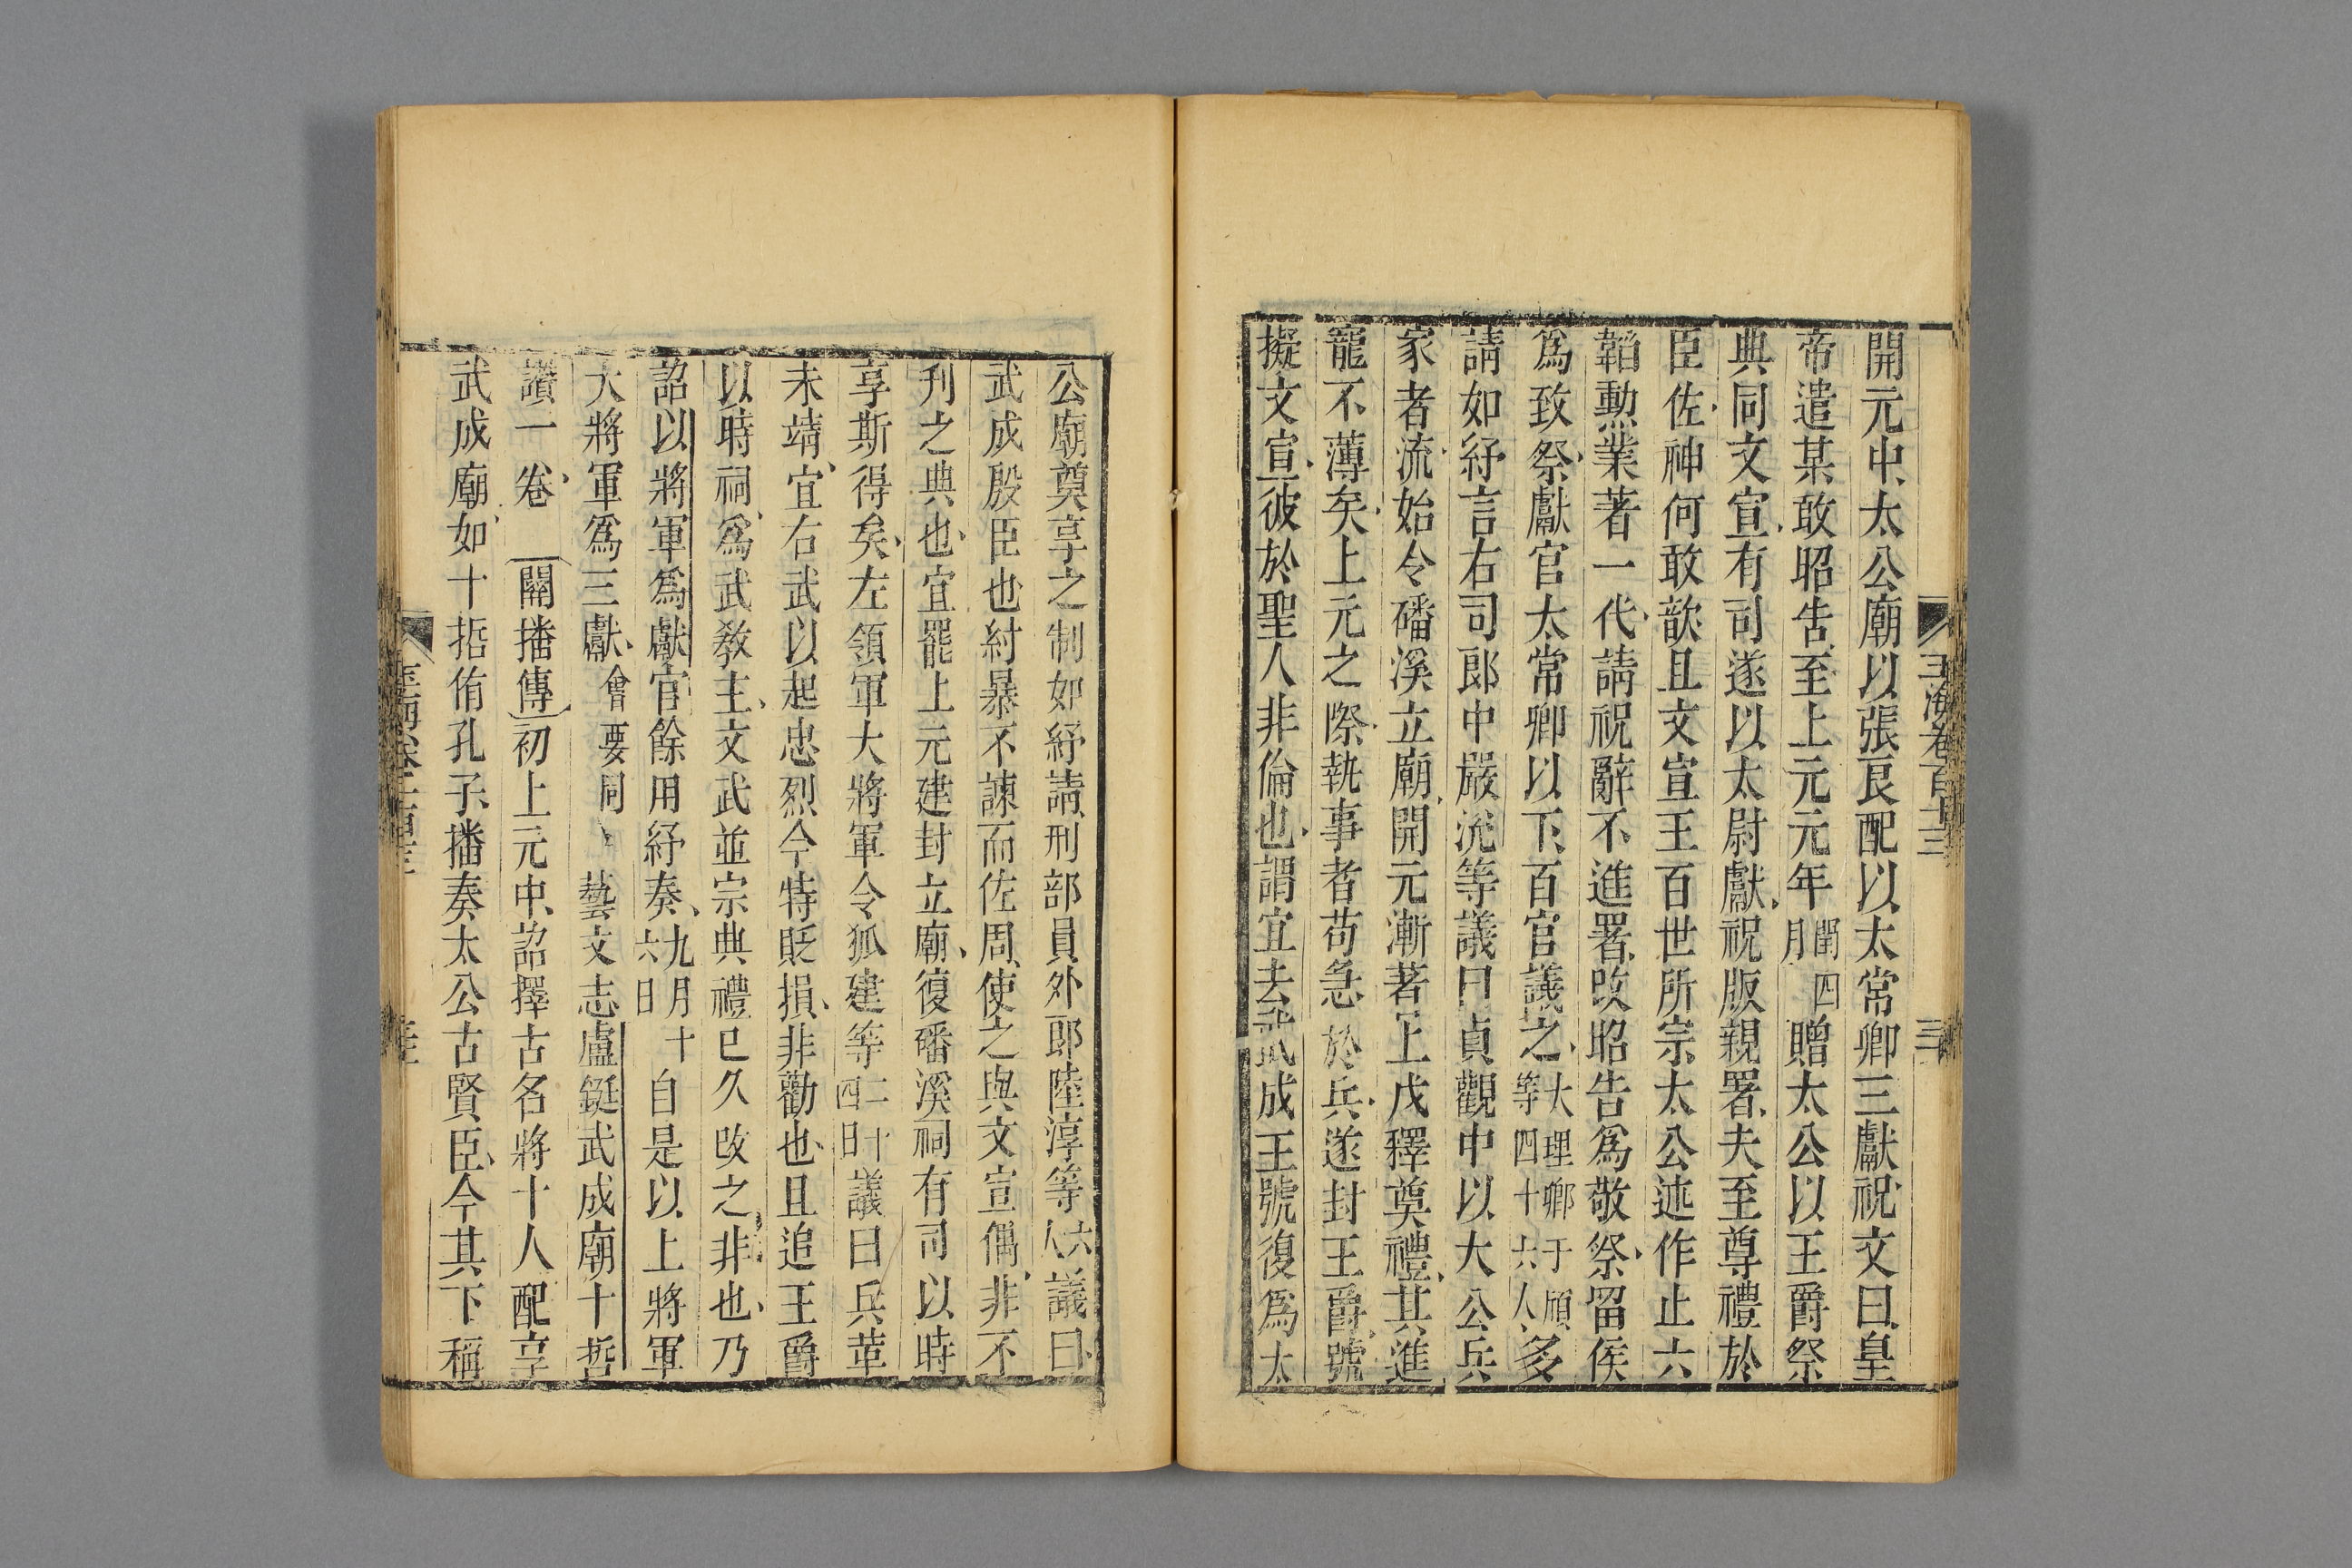 玉海卷百十三
開元中太公廟以張良配以太常卿三獻祝文曰皇
帝遣某敢昭告至上元元年閏四月贈太公以王爵祭
典同文宣有司遂以太尉獻祝版親署夫至尊禮於
臣佐神何敢歆且文宣王百世所宗太公述作止六
韜勲業著一代請祝辭不進署改昭告爲敬祭留侯
爲致祭獻官太常卿以下百官議之大理卿于頎等四十六人多
請如紓言右司郎中嚴涗等議曰貞觀中以大公兵
家者流始令磻溪立廟開元漸著上戊釋奠禮其進
寵不薄矣上元之際執事者苟急於兵遂封王爵號
擬文宣彼於聖人非倫也謂宜去武成王號復爲太
公廟奠享之制如紓請刑部員外郎陸淳等六人議曰
武成殷臣也紂暴不諫而佐周使之與文宣偶非不
刋之典也宜罷上元建封立廟復磻溪祠有司以時
享斯得矣左領軍大將軍令狐建等二十四日議曰兵革
未靖宜右武以起忠烈今特貶損非勸也且追王爵
以時祠爲武敎主文武並宗典禮已久改之非也乃
詔以將軍爲獻官餘用紓奏九月十六日自是以上將軍
大將軍爲三獻會要同藝文志盧鋌武成廟十哲
讚一卷 關播傳初上元中詔擇古名將十人配享
武成廟如十哲侑孔子播奏太公古賢臣今其下稱